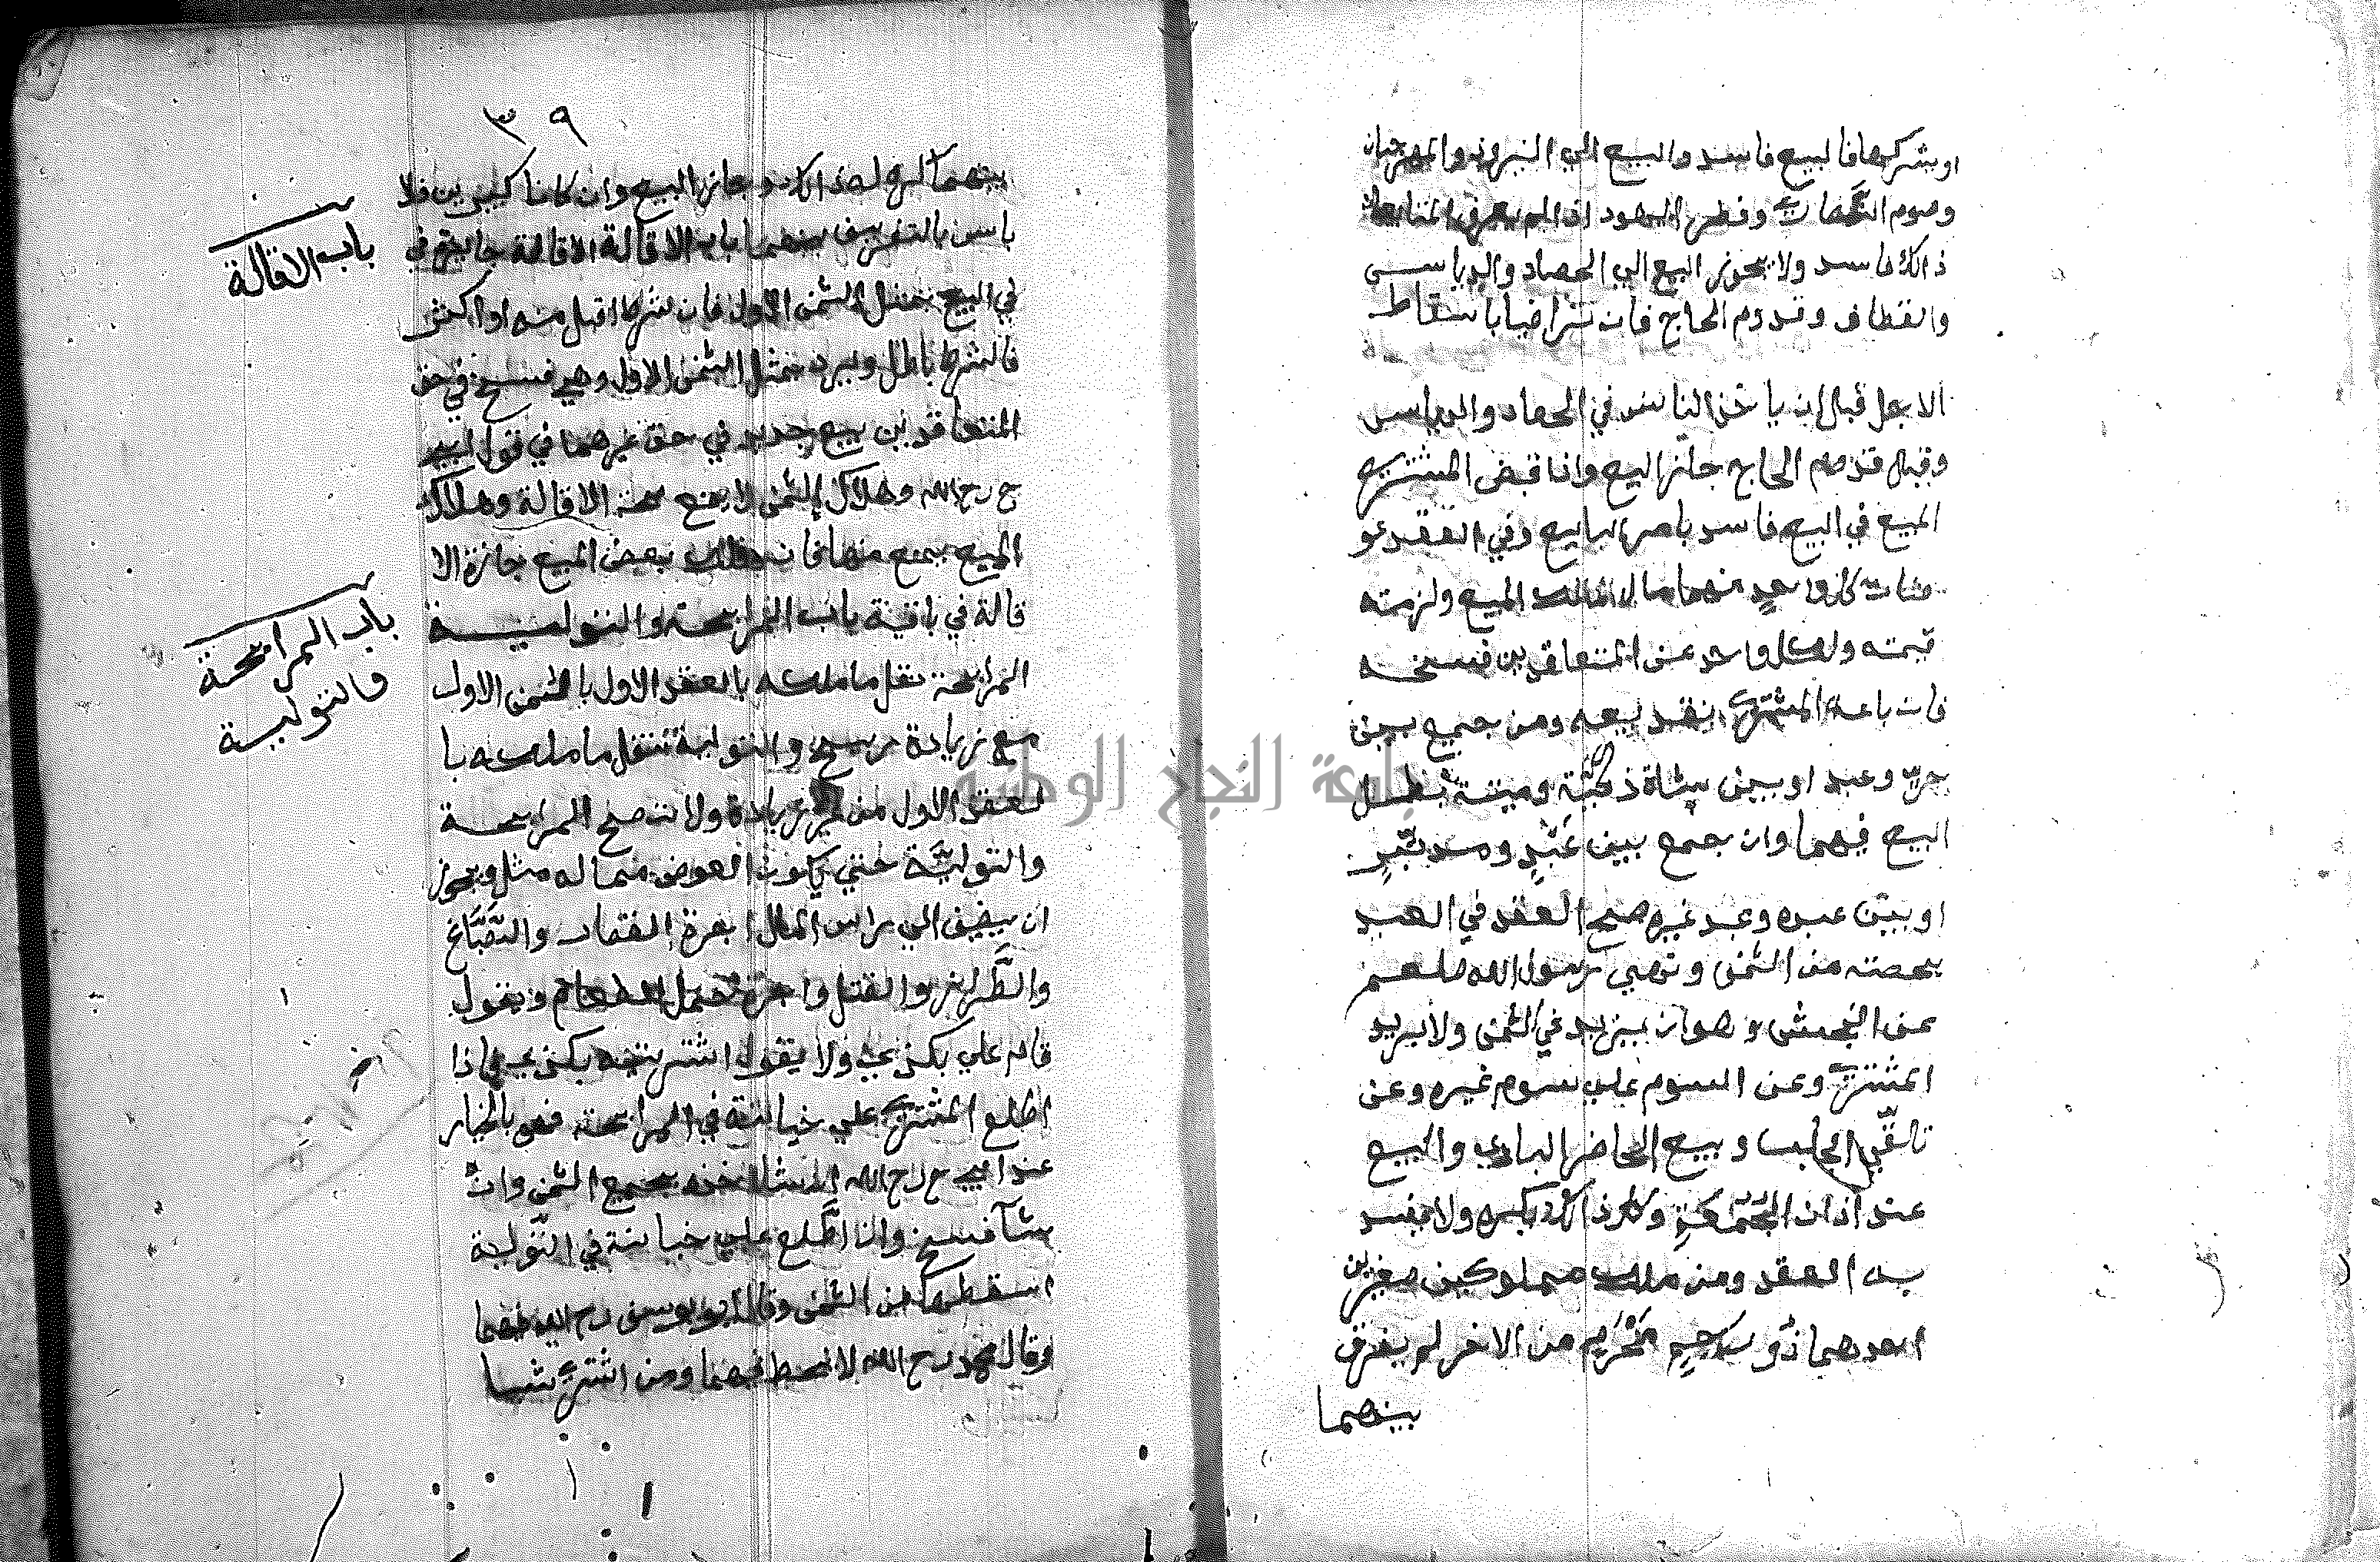 او يشركها فالبيع فاسد والبيع الي النيروز والمهرجان
وصوم النصارى وفطر اليهود اذا لم يعرف المتبايعان
ذالك فاسد ولا يجوز البيع الي الحصاد والدياس
والقطاف وقدوم الحاج فان تراضيا باسقاط
الاجل قبل ان ياخذ الناس في الحصاد والدياس
وقبل قدوم الحاج جاز البيع واذا قبض المشتري
المبيع في البيع فاسد بامر البايع وفي العقد عو
ضان كل واحد منهما مال ملك المبيع ولزمته
قيمته ولكل واحد من المتعاقدين فسخه
فان باعه المشتري نفد بيعه ومن جمع بين
حر وعبد او بين شاة ذكية وميتة بطل
البيع فيهما وان جمع بين عبد ومدبر
او بين عبده وعبد غيره صح العقد في العبد
بحصته من الثمن ونهي رسول الله صلعم
عن النجش وهو ان يزيد في الثمن ولا يريد
المشتري وعن السوم علي سوم غيره وعن
تلقي الجلب وبيع الحاضر البادي والبيع
عند اذان الجمعة وكل ذالك يكره ولا يفسد
به العقد ومن ملك مملوكين صغيرين
احدهما ذو رحم محرم من الاخر لم يفرق
بينهما
٣٩
بينهما كره لذالك وجاز البيع وان كانا كبيرين فلا
باس بالتفريق بينهما باب الاقالة الاقالة جايزة في
في البيع بمثل الثمن الاول فان شرط اقل منه او اكثر
فالشرط باطل ويرد بمثل الثمن الاول وهي فسخ في حق
المتعاقدين بيع جديد في حق غيرهما في قول ابي
ح رح الله وهلاك الثمن لا يمنع صحة الاقالة وهلاك
المبيع يمنع منها فان هلك بعض المبيع جازة الا
قالة في باقية باب المرابحة والتولية
المرابحة نقل ما ملكه بالعقد الاول بالثمن الاول
مع زيادة ربح والتولية نقل ما ملكه با
لعقد الاول من غير زيادة ولا تصح المرابحة
والتولية حتي يكون العوض مما له مثل ويجوز
ان يضيف الي راس المال اجرة القصار والصباغ
والطراز والفتل واجرة حمل الطعام ويقول
قام علي بكذا ولا يقول اشتريته بكذا فاذا
اطلع المشتري علي خيانة في المرابحة فهو بالخيار
عند ابي ح رح الله ان شا اخذه بجميع الثمن وان
شآ فسخ وان اطلع علي خيانة في التولية
اسقطها من الثمن وقال ابو يوسف رح الله يحط فيهما
وقال محمد رح الله لا يحط فيهما ومن اشتري شيا
باب الاقالة
باب المرابحة
والتولية
جامعة النجاح الوطنية